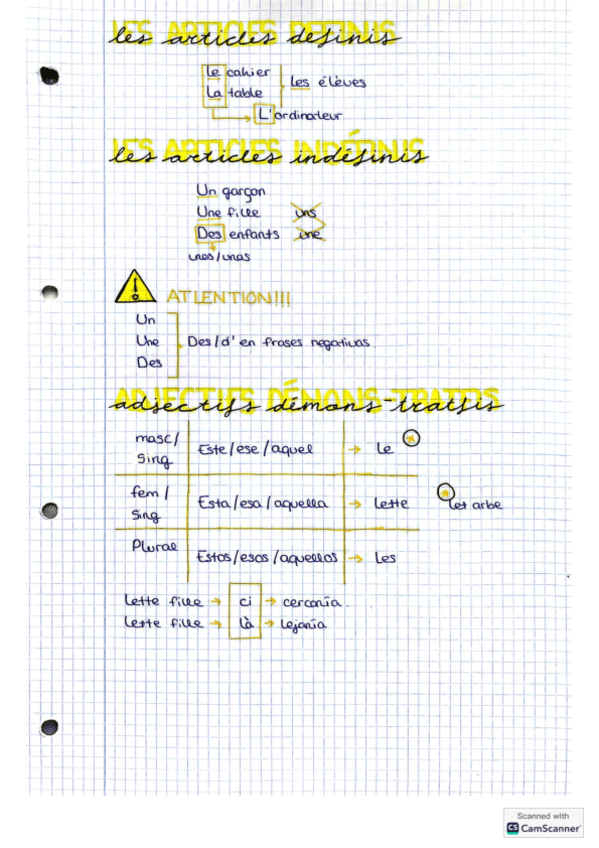 les articles définis
Le cahier
La table
Les élèves
L'ordinateur
les articles indéfinis
Un garçon
Une fille uns
Des enfants une
unos/unas
ATLENTION!!!
Un
Une
Des
Des/d' en frases negativas.
adjectifs démons-tratfis
masc/ Este/ese/aquel → Le *
Sing
fem/ Esta/esa/aquella → Lette * Let arbe
Sing
Plural Estos/esos/aquellos → Les
Lette fille → ci → cercanía.
Lette fille → là → Lejanía
Scanned with
CS CamScanner